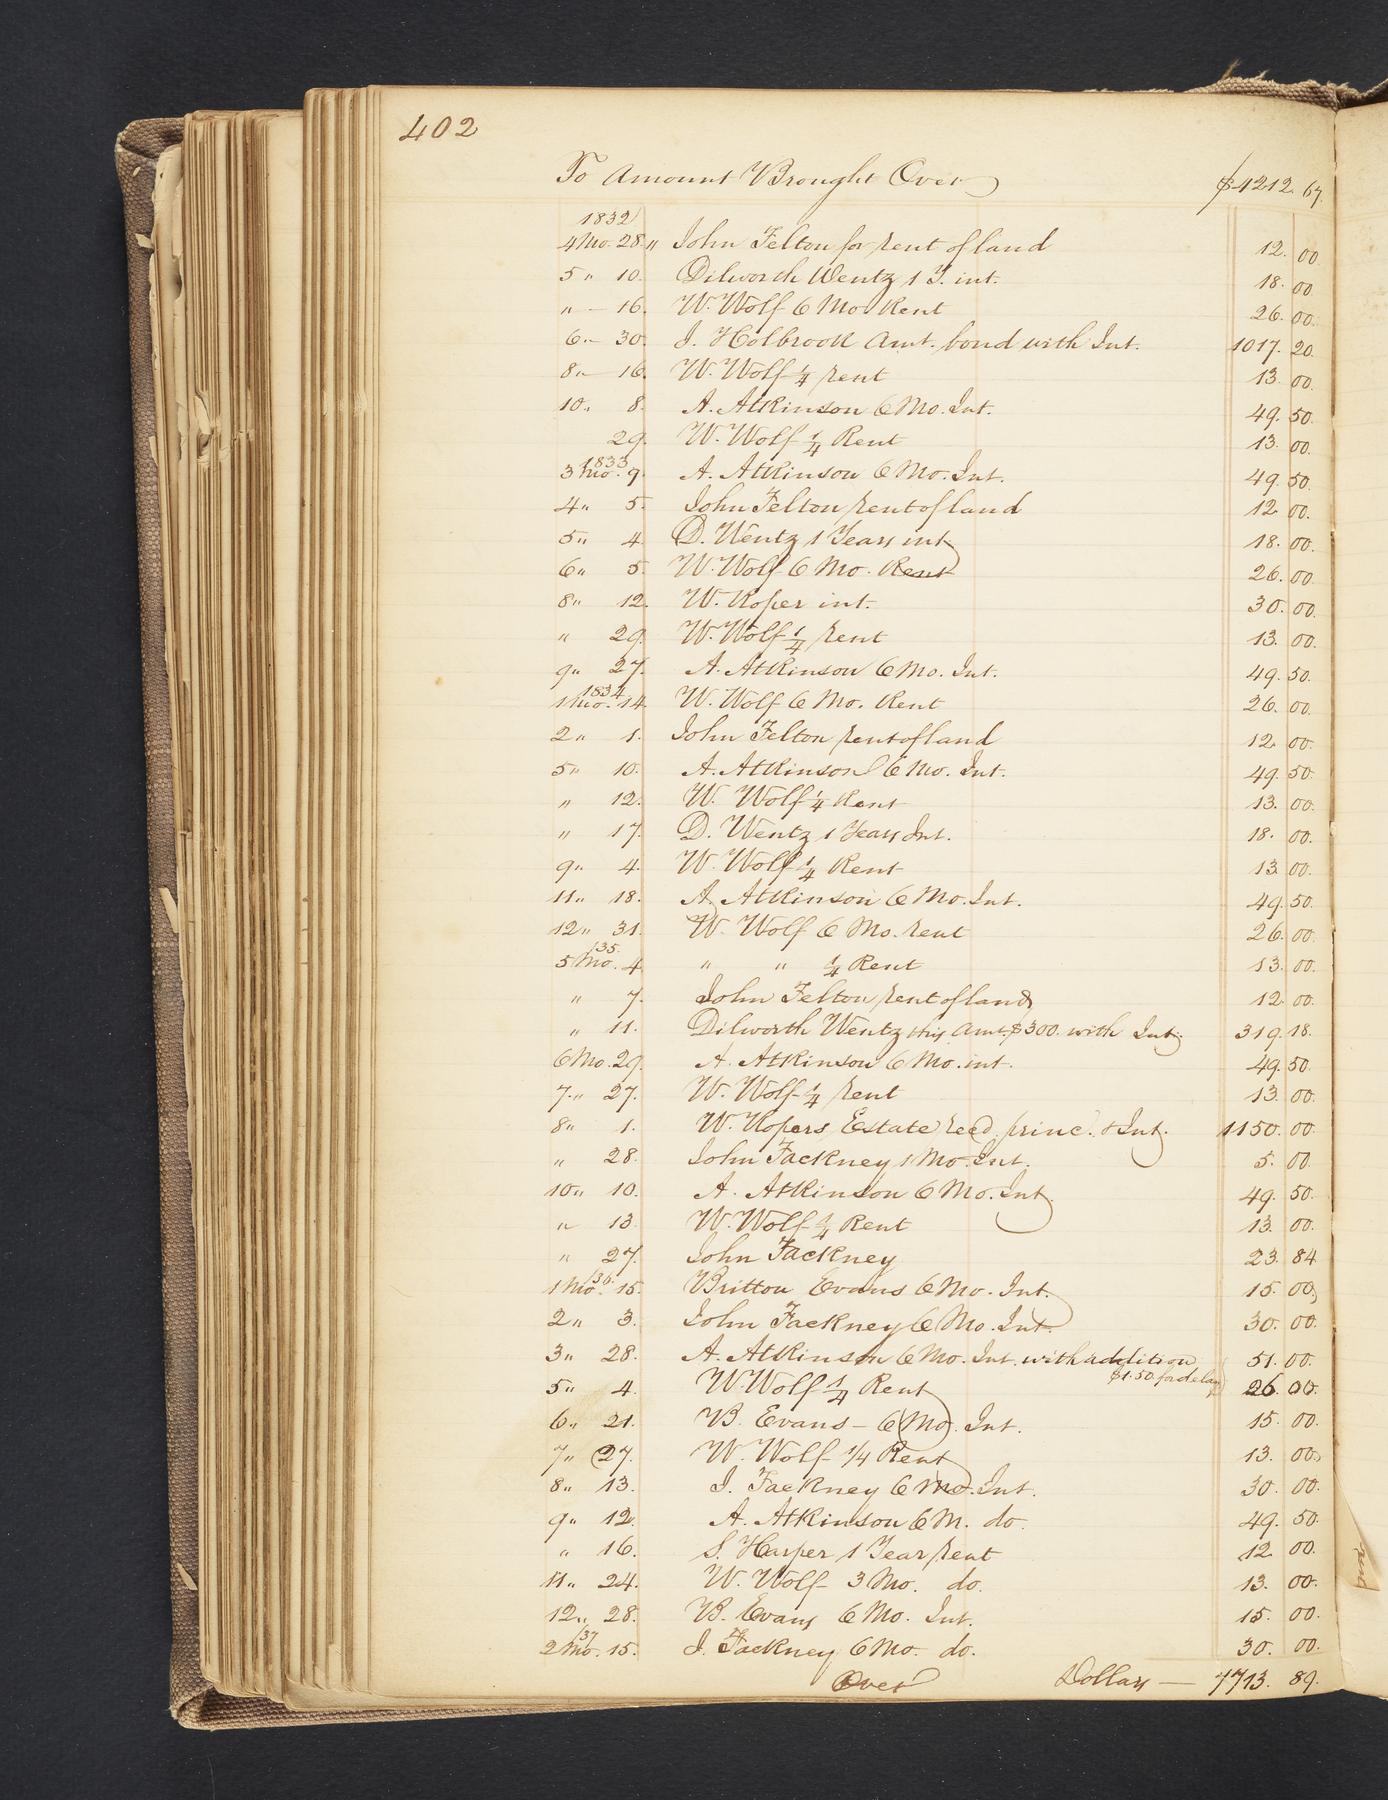 402
To Amount Brought Over $4212. 67.
1832
4 Mo. 28 " John Felton for rent of land 12. 00
5 " 10. Dilworth Wentz 1 Y. int. 18. 00
" — 16. W. Wolf 6 Mo Rent 26. 00.
6 " — 30. J. Holbrook Amt. bond with Int. 1017. 20.
8 " — 16. W. Wolf 1/4 rent 13. 00.
10 " 8. A. Atkinson 6 Mo. Int. 49. 50.
29. W. Wolf 1/4 Rent 13. 00.
1833
3 Mo. 9. A. Atkinson 6 Mo. Int. 49. 50.
4 " 5. John Felton rent of land 12. 00.
5 " 4. D. Wentz 1 Years int 18. 00.
6 " 5. W. Wolf 6 Mo. Rent 26. 00.
8 " 12. W. Roper int. 30. 00.
" 29. W. Wolf 1/4 rent 13. 00.
9 " 27. A. Atkinson 6 Mo. Int. 49. 50.
1834
1 Mo. 14. W. Wolf 6 Mo. Rent 26. 00.
2 " 1. John Felton rent of land 12. 00.
5 " 10. A. Atkinson 6 Mo. Int. 49. 50.
" 12. W. Wolf 1/4 Rent 13. 00.
" 17. D. Wentz 1 Years Int. 18. 00.
9 " 4. W. Wolf 1/4 Rent 13. 00.
11 " 18. A. Atkinson 6 Mo. Int. 49. 50.
12 " 31. W. Wolf 6 Mo. rent 26. 00.
/35.
5 Mo. 4. " " 1/4 Rent 13. 00.
" 7. John Felton rent of land 12. 00.
" 11. Dilworth Wentz this Amt. $300. with Int. 319. 18.
6 Mo. 29. A. Atkinson 6 Mo. int. 49. 50.
7 " 27. W. Wolf 1/4 rent 13. 00.
8 " 1. W. Ropers Estate recd. princ. & Int. 1150. 00.
" 28. John Fackney 1 Mo. Int. 5. 00.
10 " 10. A. Atkinson 6 Mo. Int. 49. 50.
" 13. W. Wolf 1/4 Rent 13. 00.
" 27. John Fackney 23. 84
/36.
1 Mo. 15. Britton Evans 6 Mo. Int. 15. 00
2 " 3. John Fackney 6 Mo. Int. 30. 00.
3 " 28. A. Atkinson 6 Mo. Int. with addition 51. 00.
$1.50 for delay
5 " 4. W. Wolf 1/4 Rent 26. 00.
6 " 21. B. Evans — 6 Mo. Int. 15. 00.
7 " 27. W. Wolf 1/4 Rent 13. 00.
8 " 13. J. Fackney 6 Mo. Int. 30. 00.
9 " 12. A. Atkinson 6 M. do. 49. 50.
" 16. S. Harper 1 Year rent 12. 00.
11 " 24. W. Wolf 3 Mo. do. 13. 00.
12 " 28. B. Evans 6 Mo. Int. 15. 00.
/37
2 Mo. 15. J. Fackney 6 Mo. do. 30. 00.
Over Dollars — 7713. 89.